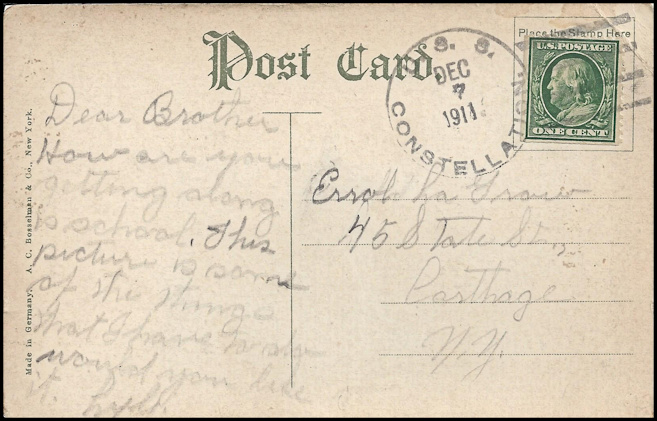 Post Card.
Place the Stamp Here
U.S. POSTAGE
ONE CENT
U. S. S. CONSTELLATION.
DEC
7
1911
Made in Germany. A. C. Bosselman & Co., New York.
Dear Brother
How are you
getting along
is school. This
picture is some
of the things
that I have to do
would you like
it.
Errol La Grow
45 State St.,
Carthage
N.Y.